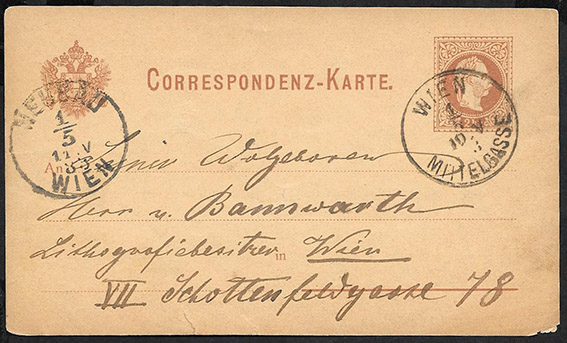 CORRESPONDENZ-KARTE.
NEUBAU
1/5
11 V
WIEN
WIEN
10 V
MITTELGASSE
An
Seiner Wolgeboren
Herrn v. Bannwarth
Lithografiebesitzer in Wien
VII Schottenfeldgasse 78